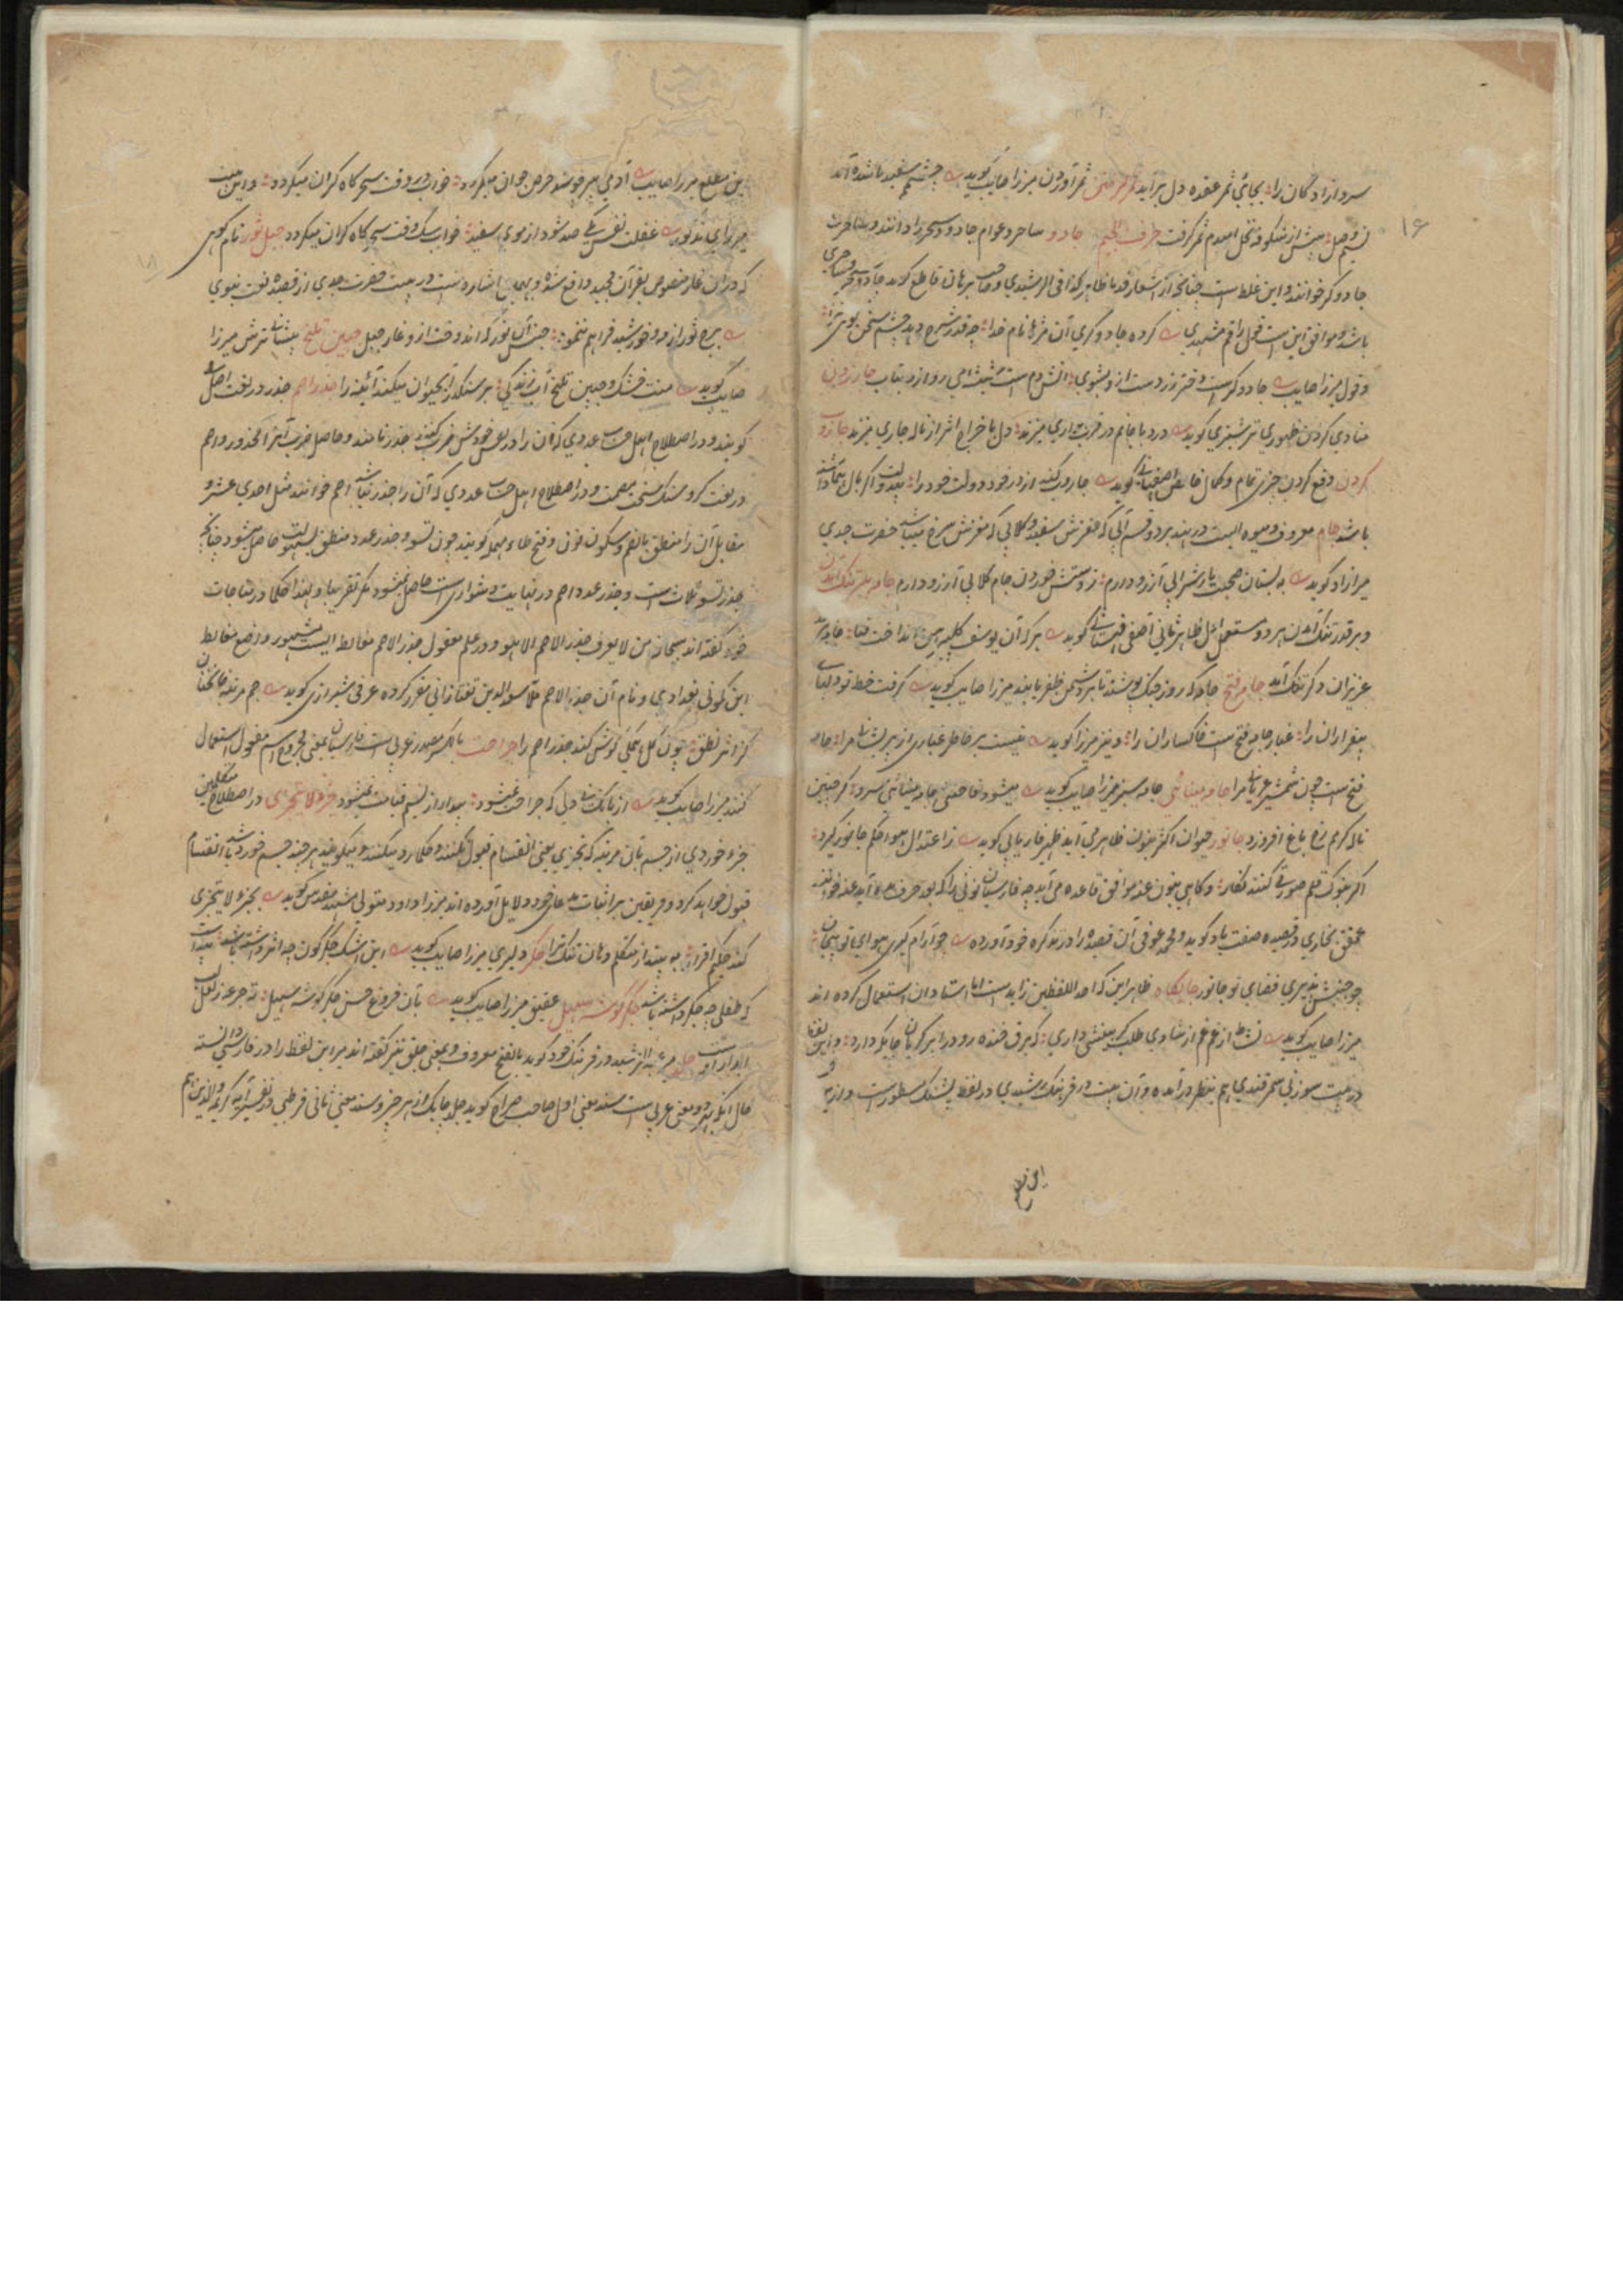 سرو ازادگان را بجائی ثمر عقده دل برآید ثمر گرفتن ثمر آوردن میرزا صایب گوید چشم سفید ناشده آمد
نسیم وصل پیش از شکوفه نخل امیدم ثمر گرفت حرف الجیم جادو ساحر و عوام جادو سحر را دانند و ساحر را
جادوگر خوانند و این غلط است چنانچه از اشعار قدما ظاهر کذا فی الرشیدی و صاحب برهان قاطع گوید جادو سحر و ساحری
باشد و موافق این است قول راقم مشهدی کرده جادوگری آن مژها نام خدا چه قدر سرمه دهد چشم سخن گوی ترا
و قول میرزا صایب جادوگر است دختر رز دست ازو بشوی آتش دم است شیشه می رو ازو بتاب جار زدن
منادی کردن ظهوری ترشیزی گوید درد با جانم در قرب داری میزند دل باخراج اثر از ناله جاری میزند جاروب
کردن رفع کردن چیزی تمام و کمال فایض اصفهانی گوید جاروب کنید از در خود دولت خود را
باشد جام معروف و میوه ایست در هند بر دو قسم آبی که مغزش سفید و گلابی که مغزش سرخ میباشد حضرت جدی
میر ازاد گوید به بستان صحبت یار شرابی آرزو دارم ز دستش خوردن جام گلابی آرزو دارم جامه بر تنگ آمدن
و بر قد تنگ آمدن هر دو مستعمل اول ظاهر ثانی آصفی قهستانی گوید هر که آن یوسف گلپیرهن انداخت قبا جامه بر قد
عزیزان وگر تنگ آمد جامه فتح جامه که روز جنگ پوشند تا بر دشمن ظفر یابند میرزا صایب گوید گرفت خط تو دلهای
بیقراران را غبار جامه فتح است خاکساران را و نیز میرزا گوید نیست بر خاطر غباری از پریشانی مرا جامه
فتح است چون شمشیر عریانی مرا جامه مینائی جامه سبز میرزا صایب گوید میشود فاخته‌ی جامه مینائی سرو گر چنین
ناله گرم رخ باغ افروزد جانور حیوان اکثر بنون ظاهر می آید ظهیر فاریابی گوید ز اعتدال هوا حکم جانور گیرد
اگر بنوک قلم صورتی کنند نگار و گاهی بنون غنه موافق قاعده می آید چه فارسیان نونی را که بعد حرف مده آید غنه خوانند
عمعق بخاری در قصیده صفت باد گوید و محمد عوفی آن قصیده را در تذکره خود آورده چو آرام گیری هوای تو بیجان
چو جنبش پذیری فضای تو جانور جایگاه ظاهرا این که احد اللفظین زاید است اما استادان استعمال کرده اند
میرزا صایب گوید نشاط از غم غم از شادی طلب گر بینشی داری که برق خنده رو در ابر گریان جایگه دارد و این لفظ
در بیت سوزنی سمرقندی هم بنظر در آمده و آن بیت در فرهنگ رشیدی در لفظ پشنگ مسطور است و ازین
این مطلع میرزا صایب آدمی پیر چو شد حرص جوان میگردد خواب در وقت سحرگاه گران میگردد و این بیت
میرزای مذکور غفلت نفس یکی صد شود از موی سفید خواب سگ وقت سحرگاه گران میگردد جبل ثور نام کوهی
که در آن غار منصوص بقرآن مجید واقع شده و بهمین اشاره است در بیت حضرت جدی از قصیده نعت نبوی
برج ثور از مه و خورشید فراهم ننمود جنس آن نور که اندوخت ازو غار جبل جبین تلخ پیشانی ترش میرزا
صایب گوید منت خشک و جبین تلخ آب زندگی بر سکندر آب حیوان میکند آئینه را جذر اصم جذر در لغت اصل را
گویند و در اصطلاح اهل حساب عددی که آن را در نفس خودش ضرب کنند جذر نامند و حاصل ضرب آنرا مجذور و اصم
در لغت کر و سنگ سخت مصمت و در اصطلاح اهل حساب عددی که آن را جذر نباشد اصم خوانند مثل احدی عشر و
مقابل آن را منطق بالضم و سکون نون و فتح طاء مهمله گویند چون تسع و جذر عدد منطق بسهولت حاصل میشود چنانچه
جذر تسع ثلاث است و جذر عدد اصم در نهایت دشواری است حاصل نمیشود مگر تقریبا و لهذا حکما در مناجات
خود گفته اند سبحان من لا یعرف جذر الاصم الا هو و در علم معقول جذر الاصم مغالطه ایست مشهور و واضع مغالطه
ابن کمونه بغدادی و نام آن جذر الاصم ملا سعد الدین تفتازانی مقرر کرده عرفی شیرازی گوید هم مرتبه جائی
کز اثر نطق چون گل همگی گوش کند جذر اصم را جراحت بالکسر مصدر عربی است فارسیان بمعنی مجروح اسم مفعول استعمال
کنند میرزا صایب گوید از بانگ نی دلی که جراحت نمیشود بیدار از نسیم قیامت نمیشود جزء لا یتجزی در اصطلاح متکلمین
جزء خوردی از جسم بآن مرتبه که تجزی یعنی انقسام قبول نکند و حکما رد میکنند و میگویند هر چند جسم خورد باشد انقسام
قبول خواهد کرد و فریقین بر اثبات مدعای خود دلایل آورده اند میرزا داود متولی مشهد مقدس گوید بجزء لا یتجزی
کند حکیم اقرار به بیند از متکلم دهان تنگ ترا جگر دلیری میرزا صایب گوید این اشک جگرگون چه اثر داشته باشد پیداست
که طفلی چه جگر داشته باشد جگر گوشه سهیل عقیق میرزا صایب گوید بآن فروغ حسن جگر گوشه سهیل ته جرعه ز لعل لب
آبدار اوست جلد ملا عبد الرشید در فرهنگ خود گوید بالفتح معروف و بمعنی چابک نیز گفته اند میر این لفظ را در فارسی دانسته
حال آنکه بهر دو معنی عربی است سند معنی اول صاحب صراح گوید جلد چابک از هر چیز و سند معنی ثانی قرطبی در تفسیر آیه کریمه و الذین هم